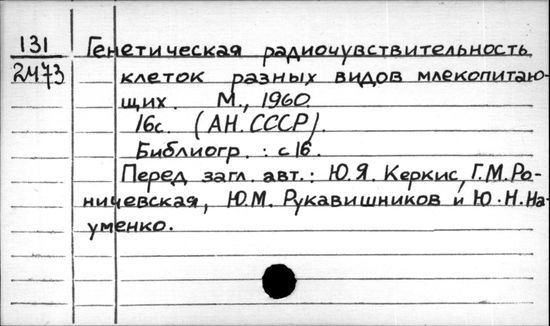 131 Генетическая радиочувствительность
2473 клеток разных видов млекопитаю-
щих. М., 1960.
16с. (АН.СССР).
Библиогр.: с 16.
Перед загл. авт.: Ю.Я. Керкис, Г.М. Ро-
ничевская, Ю.М. Рукавишников и Ю.Н. На-
уменко.